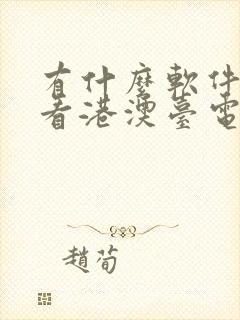 有什麼軟件
看港澳臺電
趙荀